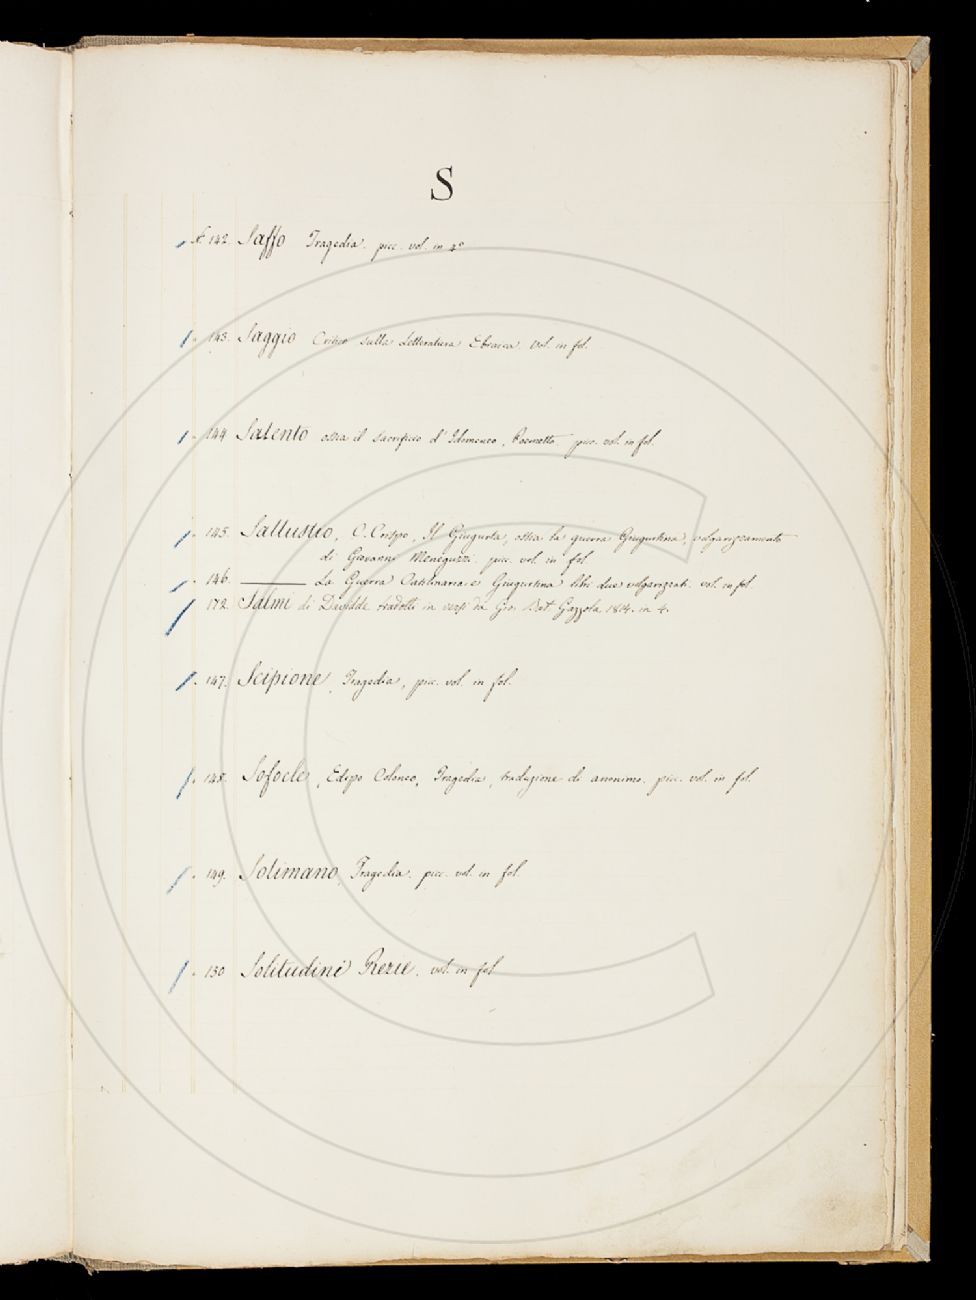 S
N. 142. Saffo Tragedia. picc. vol. in 4º
" 143. Saggio Critico sulla Letteratura Ebraica. vol. in fol.
" 144 Salento ossia il sacrificio d'Idomeneo, Poemetto picc. vol. in fol.
" 145. Sallustio, C. Crispo, Il Giugurta, ossia la guerra Giugurtina, volgarizzamento
di Giovanni Meneguzzi. picc. vol. in fol.
" 146. ——— La Guerra Catilinaria e Giugurtina libri due volgarizzati. vol. in fol.
" 172. Salmi di Davidde tradotti in versi da Gio. Bat. Gazzola 1814. in 4.
" 147. Scipione, Tragedia, picc. vol. in fol.
" 148. Sofocle, Edipo Coloneo, Tragedia, traduzione di anonimo. picc. vol. in fol.
" 149. Solimano, Tragedia. picc. vol. in fol.
" 150 Solitudini Rezie. vol. in fol